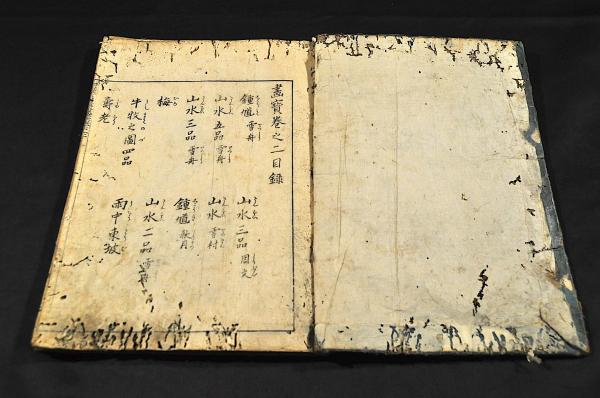 畫寶巻之二目録
鍾馗 雪舟
山水三品 周文
山水五品 雪舟
山水 雪村
山水三品 雪舟
鍾馗 秋月
梅
山水二品 雪舟
牛牧之圖四品
壽老
雨中東坡